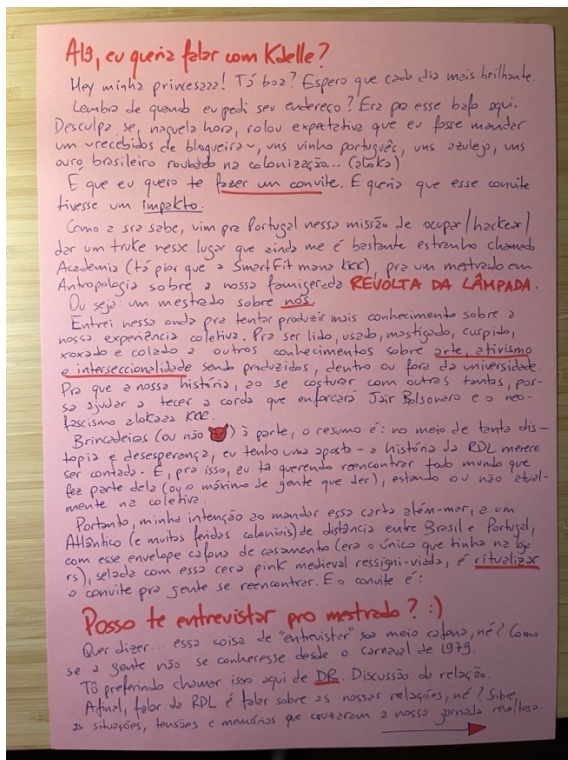 Alô, eu queria falar com Kdelle?
Hey minha princesaaa! Tá boa? Espero que cada dia mais brilhante.
Lembra de quando eu pedi seu endereço? Era po esse bafo aqui.
Desculpa se, naquela hora, rolou expectativa que eu fosse mandar
um ~recebidos de blogueira~, uns vinho português, uns azulejo, uns
ouro brasileiro roubado na colonização... (aloka)
É que eu quero te fazer um convite. E queria que esse convite
tivesse um impakto.
Como a sra sabe, vim pra Portugal nessa missão de ocupar/hackear/
dar um truke nesse lugar que ainda me é bastante estranho chamado
Academia (tá pior que a SmartFit mana kkk), pra um mestrado em
Antropologia sobre a nossa famigerada REVOLTA DA LÂMPADA.
Ou seja: um mestrado sobre nós.
Entrei nessa onda pra tentar produzir mais conhecimento sobre a
nossa experiência coletiva. Pra ser lido, usado, mastigado, cuspido,
xoxado e colado a outros conhecimentos sobre arte, ativismo
e interseccionalidade sendo produzidos, dentro ou fora da universidade.
Pra que a nossa história, ao se costurar com outras tantas, pos-
sa ajudar a tecer a corda que enforcará Jair Bolsonaro e o neo-
fascismo alokaaa kkk.
Brincadeiras (ou não 😈) à parte, o resumo é: no meio de tanta dis-
topia e desesperança, eu tenho uma aposta - a história da RDL merece
ser contada. E, pra isso, eu tô querendo reencontrar todo mundo que
fez parte dela (ou o máximo de gente que der), estando ou não atual-
mente na coletiva.
Portanto, minha intenção ao mandar essa carta além-mar, a um
Atlântico (e muitas feridas coloniais) de distância entre Brasil e Portugal,
com esse envelope cafona de casamento (era o único que tinha na loja
rs), selada com essa cera pink medieval ressigni-viada, é ritualizar
o convite pra gente se reencontrar. E o convite é:
Posso te entrevistar pro mestrado? :)
Quer dizer... essa coisa de "entrevistar" soa meio cafona, né? Como
se a gente não se conhecesse desde o carnaval de 1979.
Tô preferindo chamar isso aqui de DR. Discussão de relação.
Afinal, falar da RDL é falar sobre as nossas relações, né? Sobre
as situações, tensões e memórias que cruzaram a nossa jornada revoltosa.